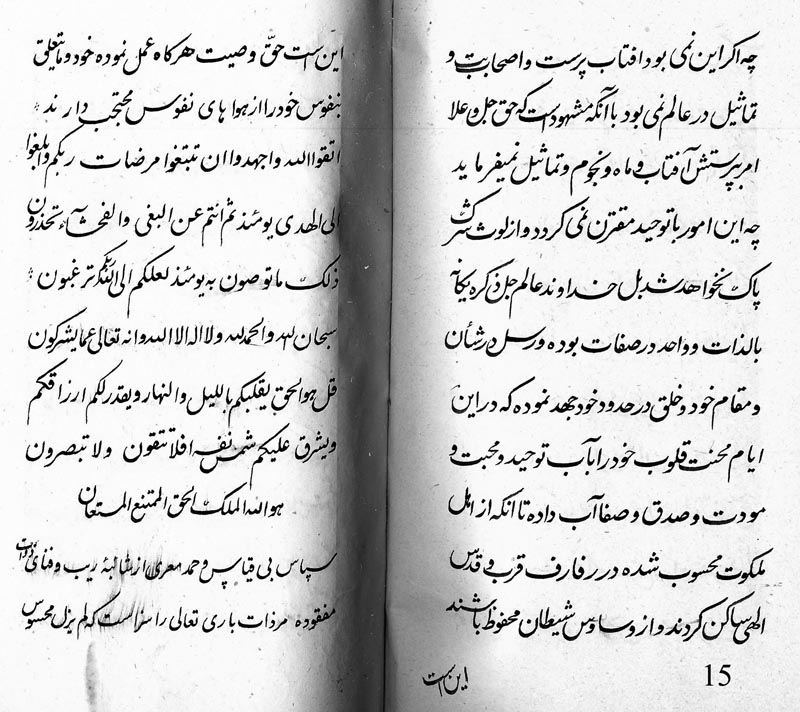 چه اکر این نمی بود افتاب پرست و اصحاب بیت و
تماثیل در عالم نمی بود با آنکه مشهود است که حق جل و علا
امر بپرستش آفتاب و ماه و نجوم و تماثیل نمیفرماید
چه این امور با توحید مقترن نمی کردد و از لوث شرک
پاک نخواهد شد بل خداوند عالم جل ذکره یکانه
بالذات و واحد در صفات بوده و رسل در شأن
و مقام خود و خلق در حدود خود جهد نموده که در این
ایام محنت قلوب خود را بآب توحید و محبت و
مودت و صدق و صفا آب داده تا انکه از اهل
ملکوت محسوب شده در رفارف قرب و قدس
الهی ساکن کردند و از وساوس شیطان محفوظ باشند
این است
15
این است حقّ وصیت هرکاه عمل نموده خود و ما یتعلق
بنفوس خود را از هوا های نفوس محتجب دارند
اتقوا الله و اجهدوا ان تبتغوا مرضات ربکم و ابلغوا
الی الهدی یومئذ ثم انتم عن البغی والفحشآء تحذرون
ذلک ما توصون به یومئذ لعلکم الی الله ربکم ترغبون
سبحان لله والحمدلله ولا اله الا الله وانه تعالی عما یشرکون
قل هو الحق یقلبکم باللیل والنهار ویقدر لکم ارزاقکم
ویشرق علیکم شمس نفسه افلا تتقون ولا تبصرون
هو الله الملک الحق الممتنع المستعان
سپاس بی قیاس و حمد معری از ریب و فنای
مفقوده مر ذات باری تعالی را سزا است که لم یزل محسوس